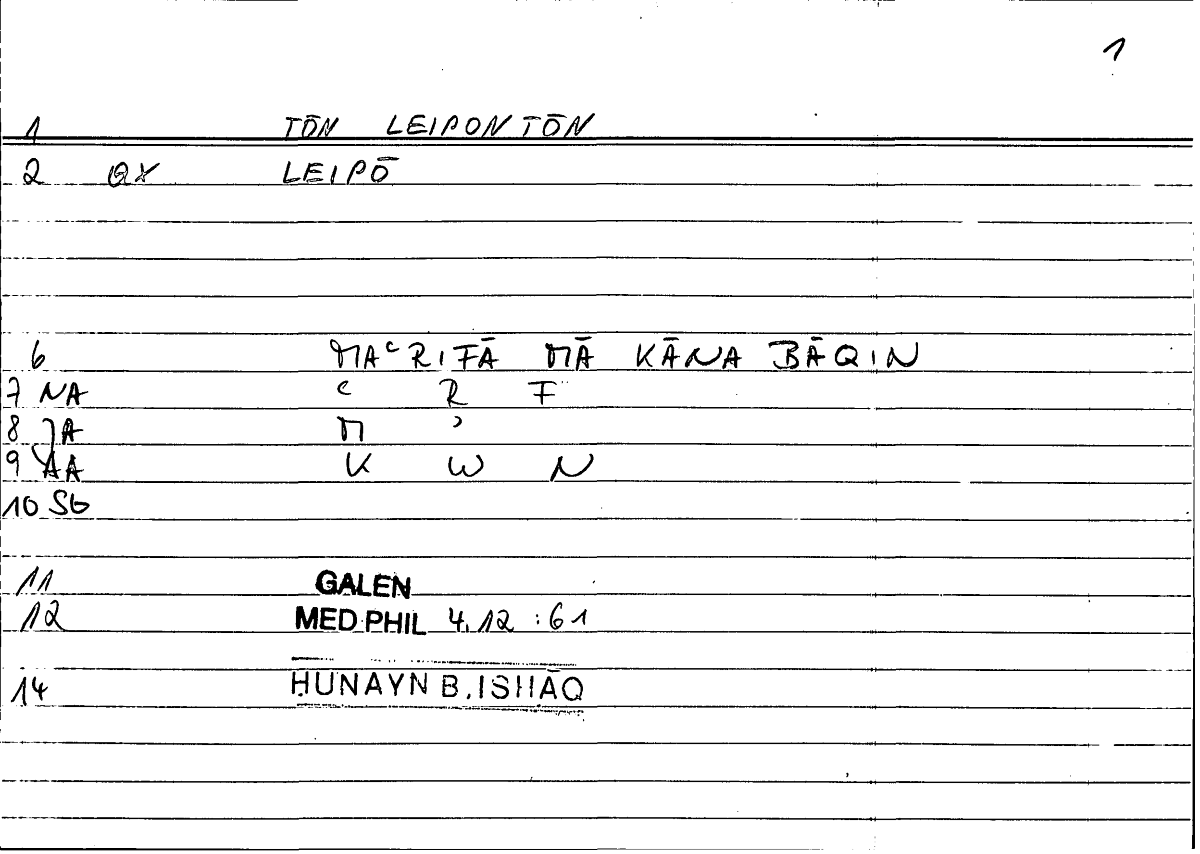 1
1 TŌN LEIPONTŌN
2 QX LEIPŌ
6 MAʿRIFĀ MĀ KĀNA BĀQIN
7 NA ʿ R F
8 JA M ʾ
9 AA K W N
10 SG
11 GALEN
12 MED PHIL 4,12 :61
14 ḤUNAYN B. ISḤĀQ